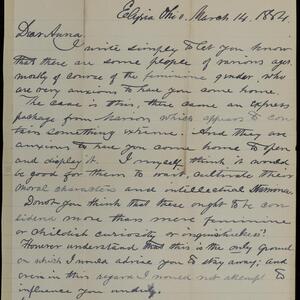 Elyria Ohio. March 14. 1884.
Dear Anna.
I write simply to let you know
that there are some people of various ages,
mostly of course of the feminine gender, who
are very anxious to have you come home.
The case is this, there came an express
package from Marion which appears to con-
tain something extreme. And they are
anxious to have you come home to open
and display it. I myself think it would
be good for them to wait, cultivate their
moral characters and intellectual
Don't you think that these ought to be con-
sidered more than mere feminine
or childish curiosity or inquisitiveness?
However understand that this is the only ground
on which I would advise you to stay away; and
even in this regard I would not attempt to
influence you unduly.